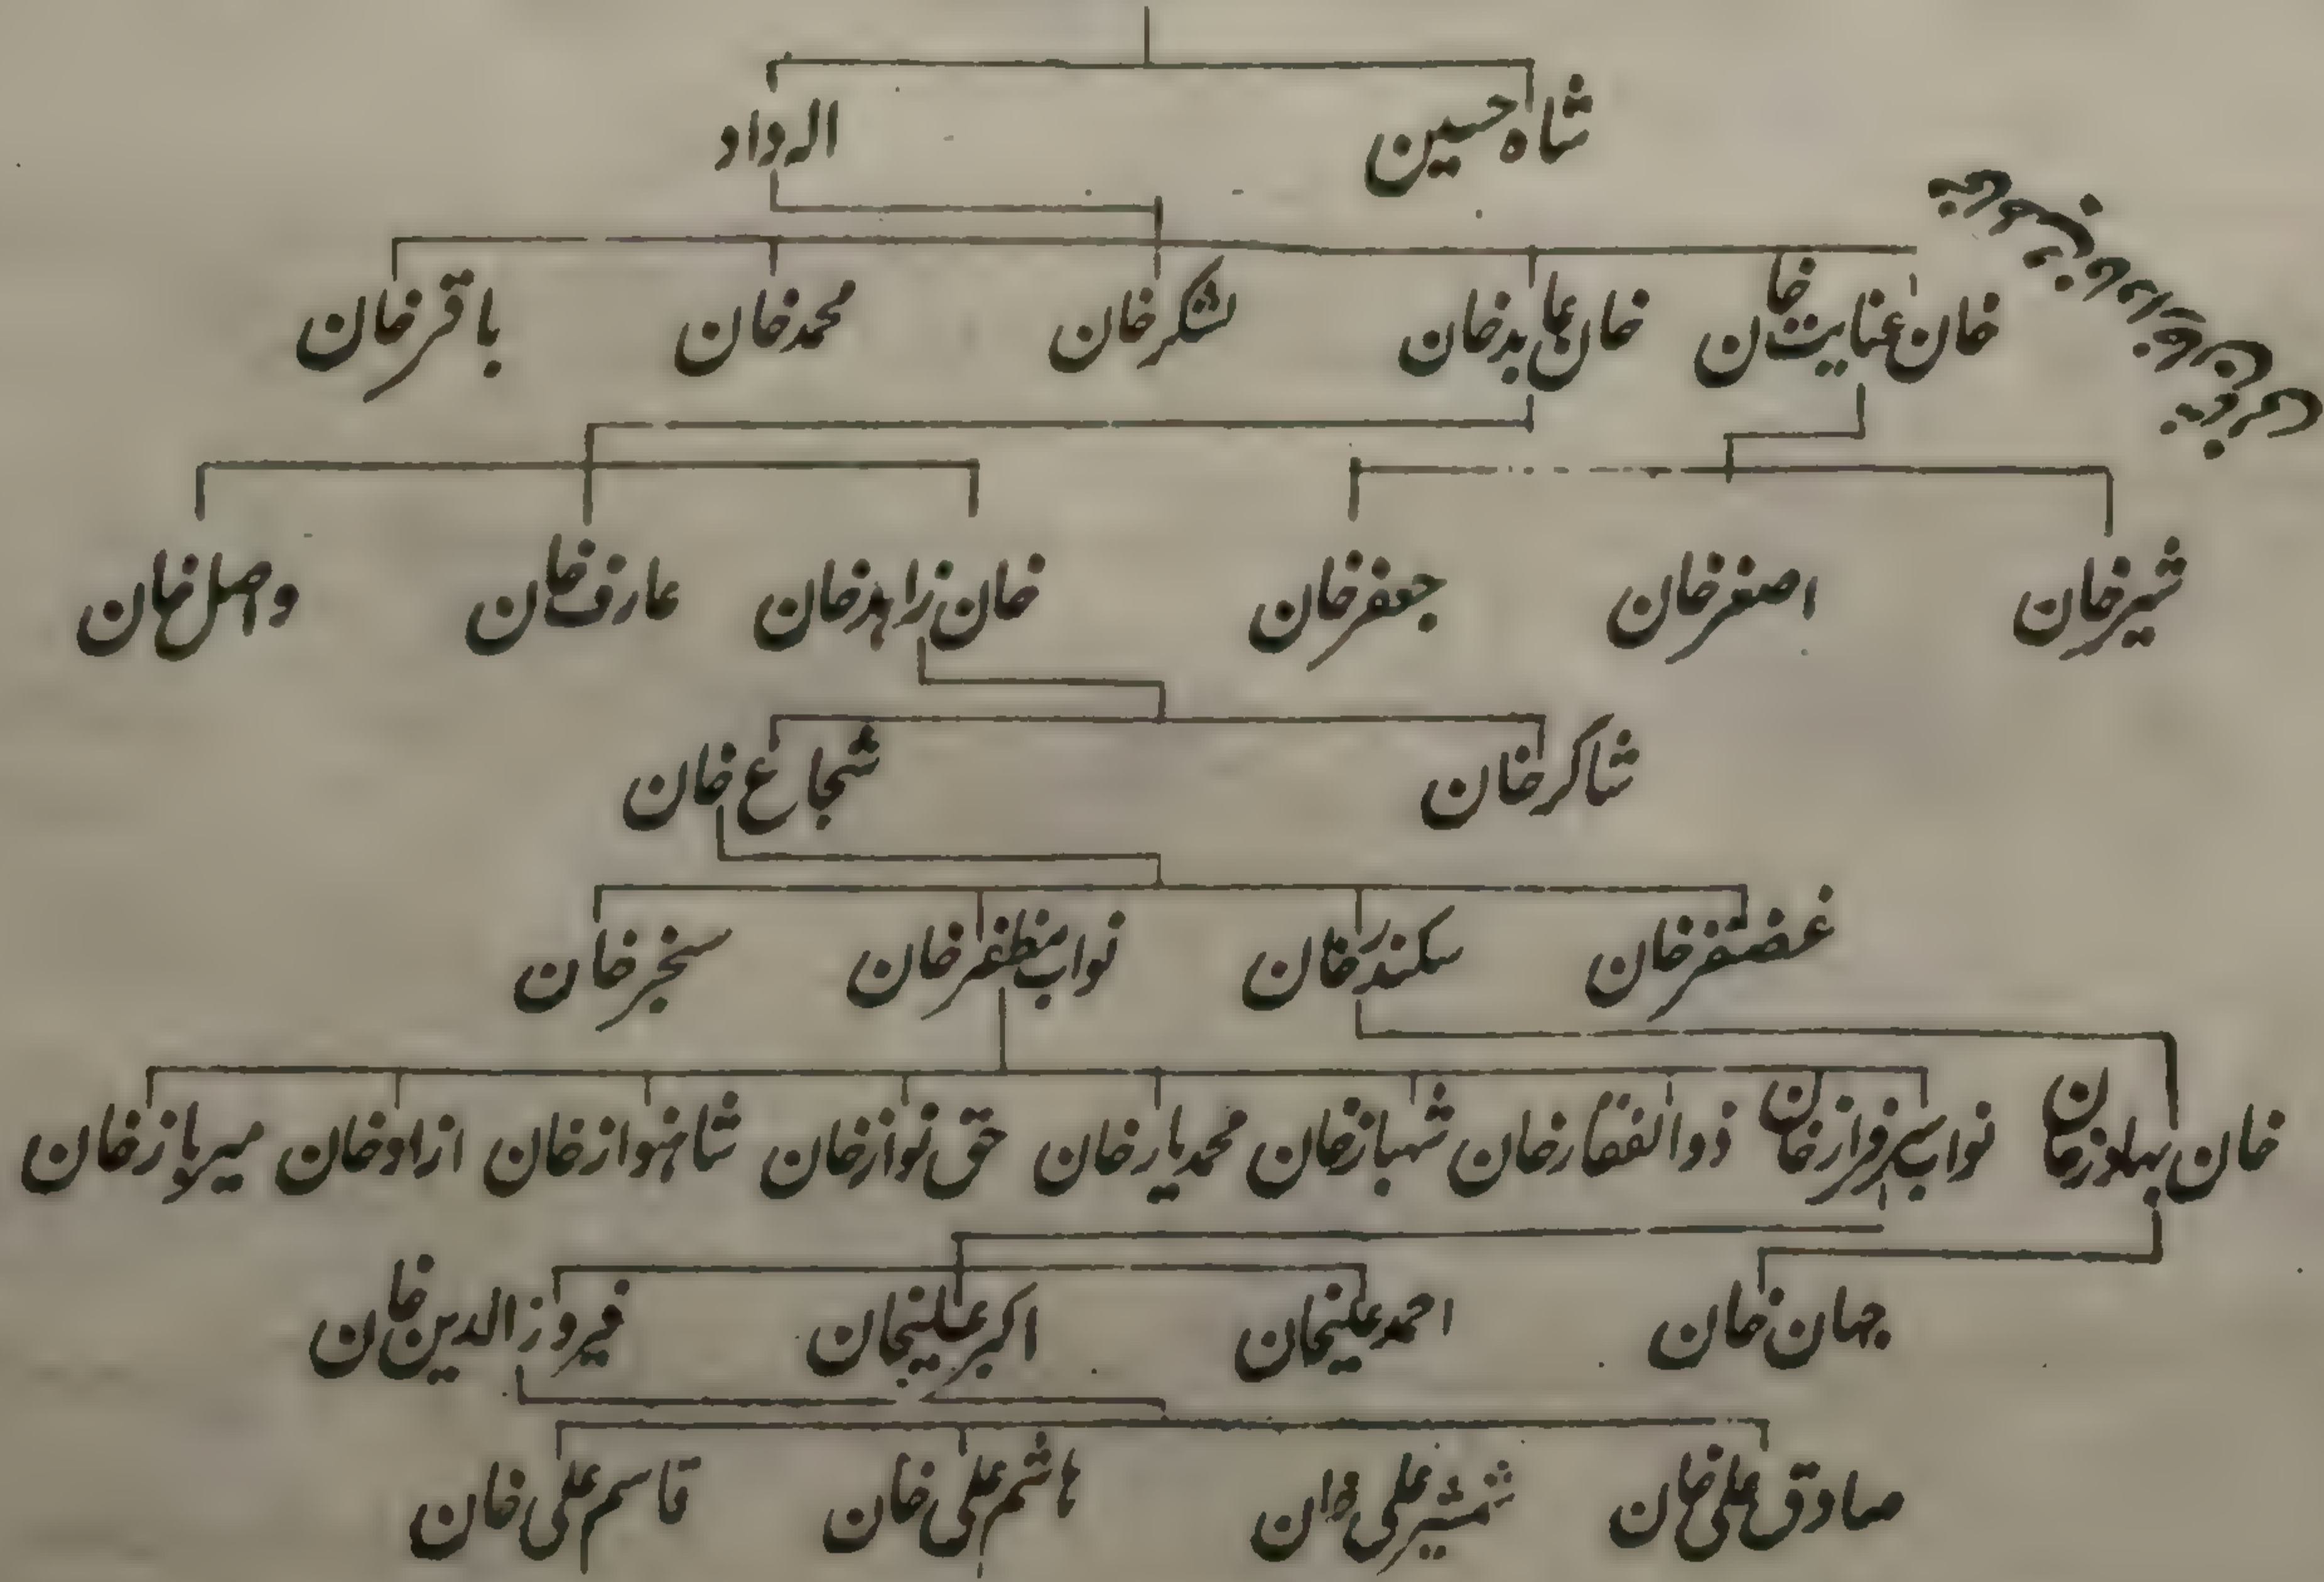 شاه حسین اله داد
خان عنایت خان خان عابد خان لشکر خان محمد خان باقر خان
شیر خان اصغر خان جعفر خان خان زاہد خان عارف خان واصل خان
شاکر خان شجاع خان
غضنفر خان سکندر خان نواب مظفر خان سنجر خان
خان بہادر خان نواب سرفراز خان ذوالفقار خان شہباز خان محمد یار خان حق نواز خان شاہنواز خان ازاد خان میرباز خان
جہان خان احمد علیخان اکبر علیخان فیروز الدین خان
صادق علی خان شمشیر علی خان ہاشم علی خان قاسم علی خان